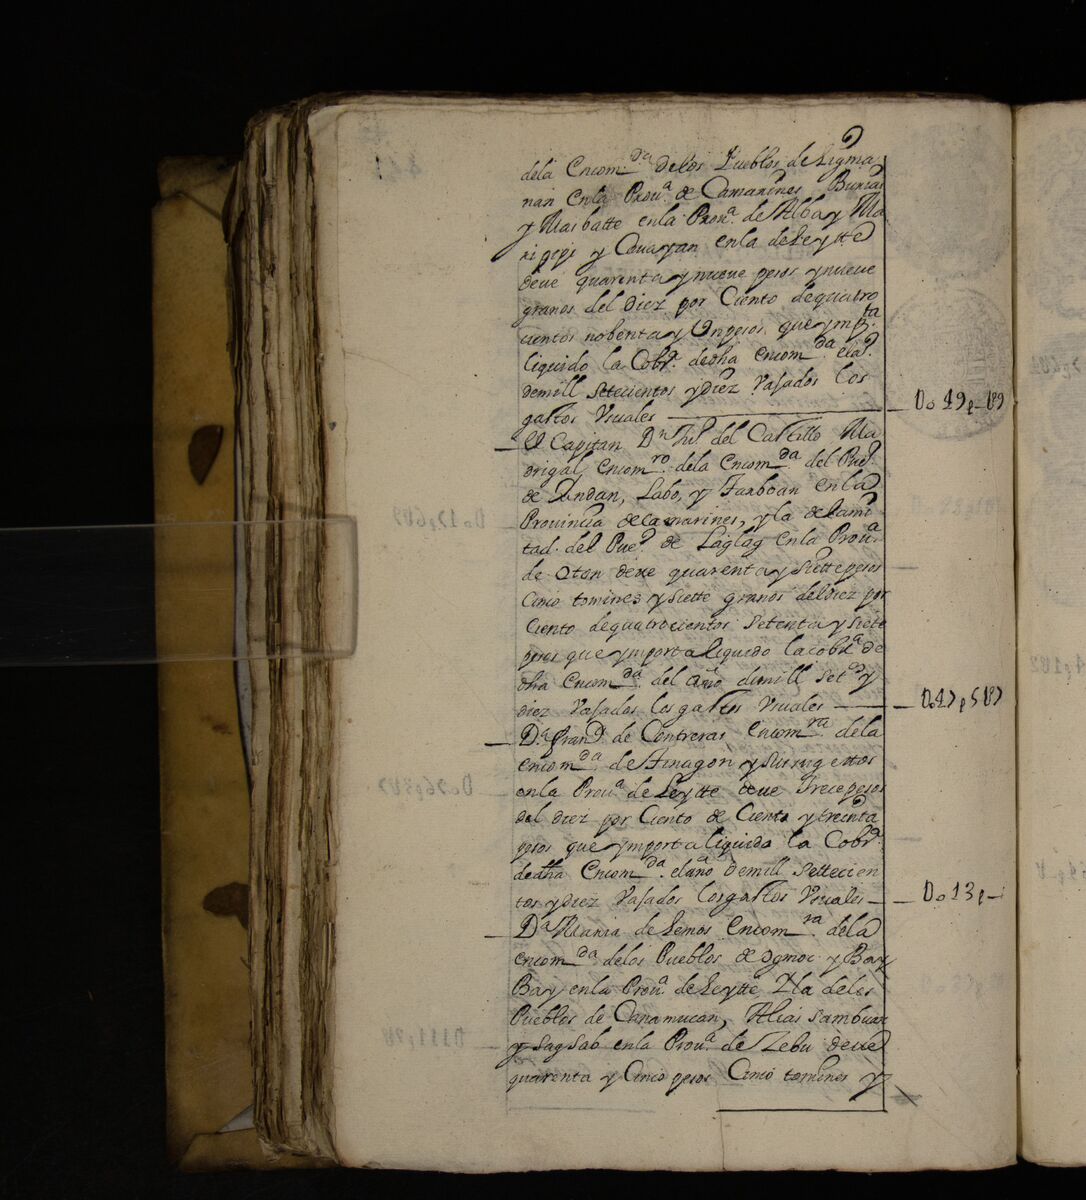 dela Encom.da delos Pueblos de Ligma
nan enla Prou.a de Camarines Burias
y Masbatte enla Prou.a de Albay Ma
ripipi y Cauayan enla de Leytte
deue quarenta y nueue pesos y nueue
granos del diez por Ciento de quatro
cientos nobenta y Un pesos que ymp.ta
liquido la Cobr.a de dha Encom.da el a.o
de mill setecientos y diez Vajados los
gastos Vsuales
Do 49p-U9
El Capitan D.n Ju.o del Castillo Ma
drigal Encom.ro dela Encom.da del Pue.o
de Yndan, Labo, y Tarboan enla
Prouincia de Camarines, y la dela mi
tad del Pue.o de Laglag enla Prou.a
de Oton deue quarenta y siette pesos
Cinco tomines y siette granos del diez por
Ciento de quatrocientos setenta y siete
pesos que ymporta liquido la cobr.a de
dha Encom.da del año de mill set.os y
diez Vajados los gastos Vsuales
Do 47p5U7
D.a Fran.ca de Contreras Encom.ra dela
encom.da de Tinagon y sus rugettos
enla Prou.a de Leytte deue Trece pesos
del diez por Ciento de Ciento y treinta
pesos que ymporta liquida la Cobr.a
de dha Encom.da el año de mill settecien
tos y diez Vajados los gastos Vsuales
Do 13p-
D.a Maria de Lemos Encom.ra dela
encom.da delos Pueblos de Ogmoc y Bay
Bay enla Prou.a de Leytte Yla delos
Pueblos de Canamucan, Alias Sambuan
y Sagsab enla Prou.a de Zebu deue
quarenta y Cinco pesos Cinco tomines y